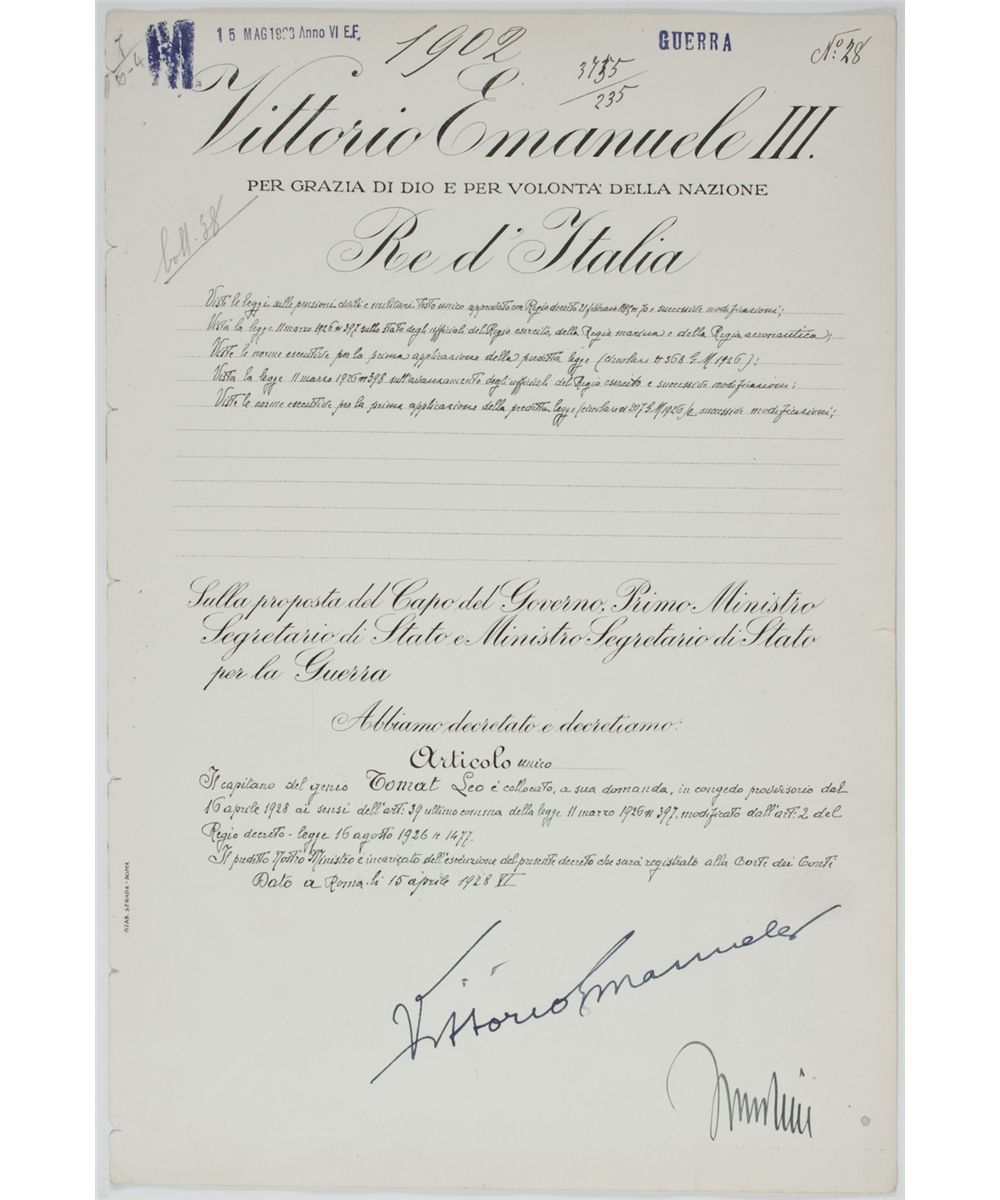 15 MAG 1928 Anno VI E.F.
1902
GUERRA
N.º 28
3755
235
Vittorio Emanuele III.
PER GRAZIA DI DIO E PER VOLONTA' DELLA NAZIONE
boll. 38
Re d'Italia
Viste le leggi sulle pensioni civili e militari testo unico approvato con Regio decreto 21 febbraio 1895 n 70 e successive modificazioni;
Vista la legge 11 marzo 1926 n 397 sullo stato degli ufficiali del Regio esercito, della Regia marina e della Regia aeronautica;
Viste le norme esecutive per la prima applicazione della predetta legge (circolare n 368 G.M. 1926);
Vista la legge 11 marzo 1926 n 398 sull'avanzamento degli ufficiali del Regio esercito e successive modificazioni;
Viste le norme esecutive per la prima applicazione della predetta legge (circolare n 207 G.M. 1926) e successive modificazioni;
Sulla proposta del Capo del Governo, Primo Ministro
Segretario di Stato e Ministro Segretario di Stato
per la Guerra
Abbiamo decretato e decretiamo:
Articolo unico
Il capitano del genio Tomat Leo è collocato, a sua domanda, in congedo provvisorio dal
16 aprile 1928 ai sensi dell'art. 39 ultimo comma della legge 11 marzo 1926 n 397, modificato dall'art. 2 del
Regio decreto-legge 16 agosto 1926 n 1477.
Il predetto Nostro Ministro è incaricato dell'esecuzione del presente decreto che sarà registrato alla Corte dei Conti
Dato a Roma, li 15 aprile 1928 VI
STAB. STRADA - ROMA
Vittorio Emanuele
Mussolini